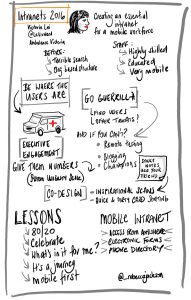 Intranets 2016
Creating an essential
intranet
for a mobile workforce
Ambulance Victoria
BEFORE:
- Terrible search
- Org based structure
STAFF:
- Highly skilled
- Educated
- Very mobile
BE WHERE THE
USERS ARE
GO GUERRILLA
FIND USERS
OFFER TREATS!
AND IF YOU CAN'T?
- Remote testing
- Blogging
- Champions
DON'T
NOTES
AND YOUR
FRIENDS
EXECUTIVE
ENGAGEMENT
GIVE THEM NUMBERS
CO-DESIGN
- INSPIRATIONAL SCREENS
- QUICK & DIRTY CARD SORTING
LESSONS
80/20
Celebrate
What's in it for me?
It's a journey
mobile first
MOBILE INTRANET
ACCESS FROM ANYWHERE
ELECTRONIC FORMS
PHONE DIRECTORY
@_rebeccajackson